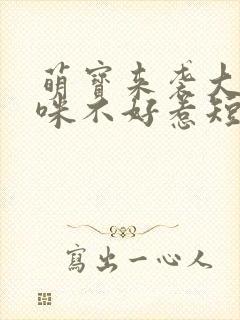 萌寶来袭大
咪不好惹短
寫出一心人